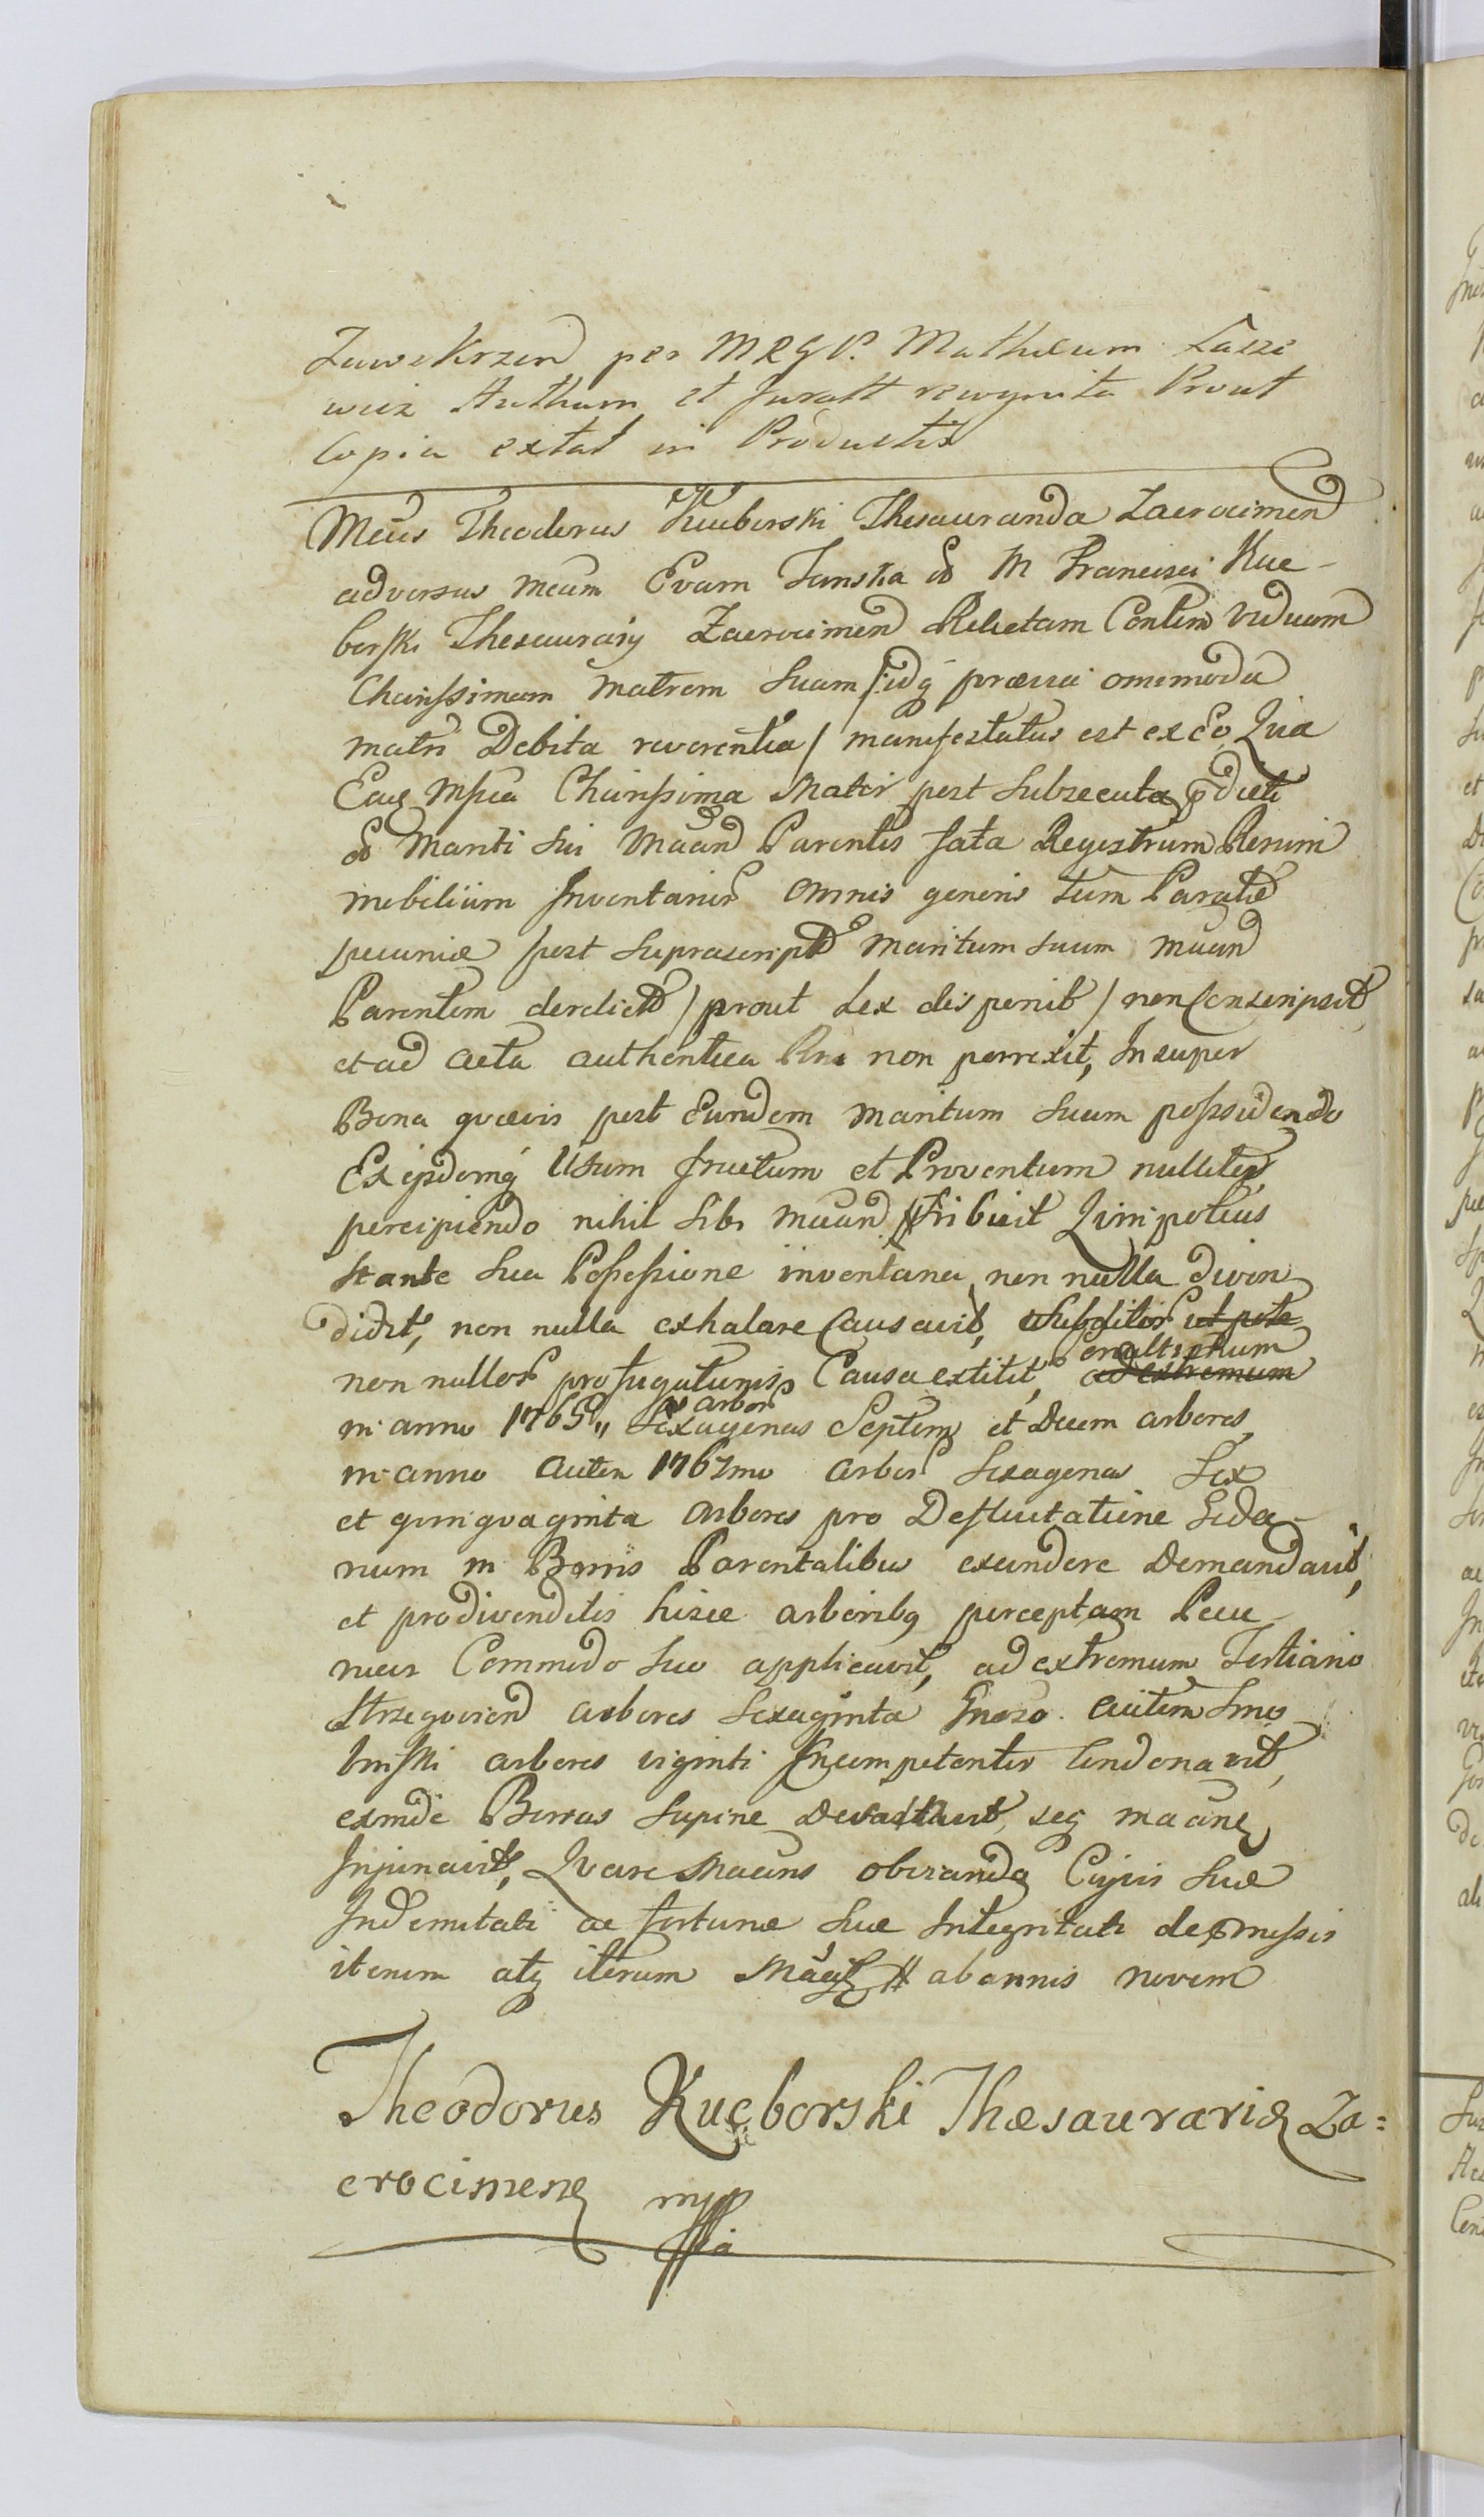 Zawskrzen per MRGP. Matheum Łaszc
wicz Autham et Juratt recognita Prout
Copia extat in Productis
Mcus Theodorus Kucborski Thesauranda Zacrocimen
adversus Mcam Evam Janska M Francisci Kuc-
borski Thesaurarij Zacrocimen Relictam Viduam
Charissimam Matrem Suam /: idq præviâ omnimodâ
matri Debita reverentia / manifestatus est ex Eo Qua
Eaq Charissima Mater post Subsecuta pdicti
Mariti Sui Maan Parentis fata Regestrum Rerum
mobilium Inventarior omnis generis tum Paratæ
pecuniæ post Suprascript Maritum Suum Maan
Parentem derelict / prout Lex disponit / non Conscripsit
et ad acta authentica non porrexit, Insuper
Bona quævis post Eundem Maritum Suum possidendo
Exijsdemq Usum fructum et Proventum nulliter
percipiendo nihil Sibi Maan tribuit Quinpotius
Stante Sua Possessione inventaria non nulla diven
didit, non nulla exhalare Causavit, Subditor ut pote
non nullor profugaturis Causa extitit, ad extremum
in anno 1765 arbor Sexagenas Septem et Decem arbores
in anno autem 1767mo arbor Sexagenas Sex
et quinquaginta arbores pro Defluitatione Geda-
num in Bonis Parentalibus exundere Demandavit,
et prodivenditis hisce arboribq perceptam Pecu-
niam Commodo Suo applicavit, ad extremum Tertiano
Strzegocien arbores Sexaginta Gnoso autem Smo
briski arbores viginti Incompetenter Condonavit,
exinde Borras Supine Devastavit, seq maanq
Injunavit, Quare Maans obviando Cujvis Suæ
Indemnitati ac fortunæ Suæ Integritati depressis
iterum atq iterum abannis novem
Theodorus Kucborski Thæsaurariq Za=
crocimenq mpp